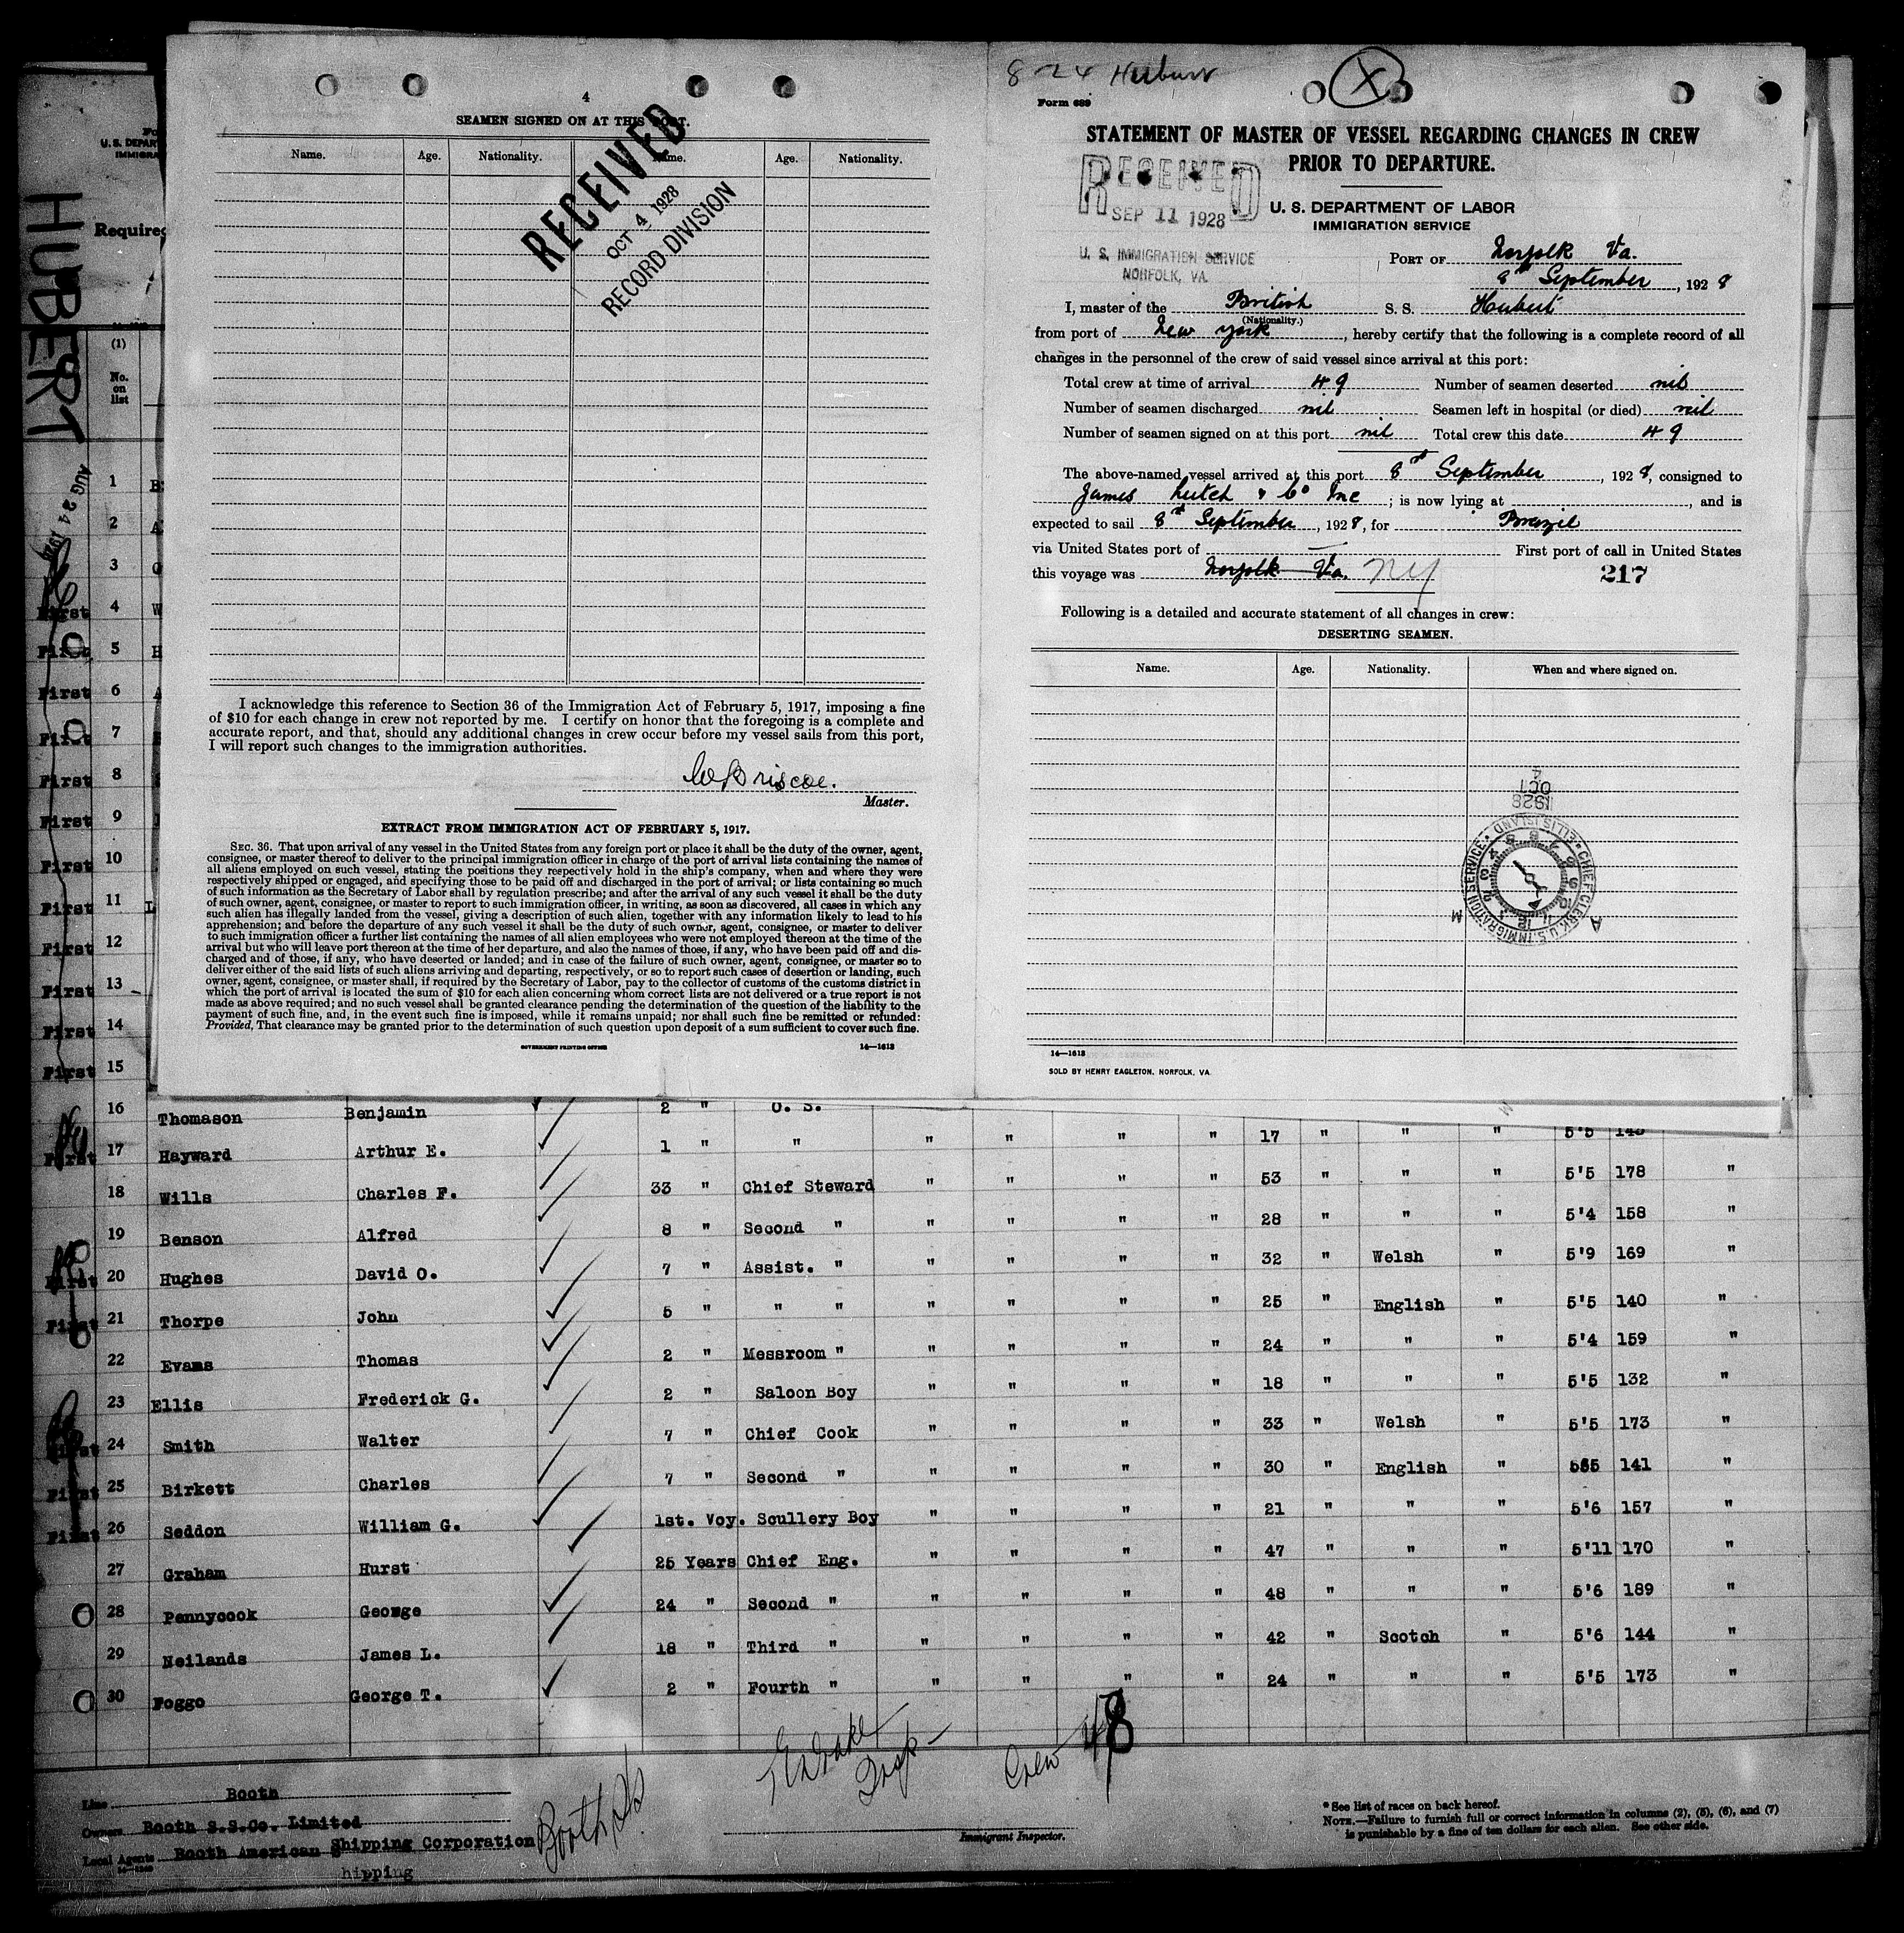 HUBERT
AUG 24 1928
U. S. DEPAR
IMMIGRA
Required
(1)
No.
on
list
1
2
3
First 4 W
First 5 H
First 6 A
First 7
First 8
First 9
First 10
First 11 L
First 12
First 13
First 14
First 15
4
SEAMEN SIGNED ON AT THIS PORT.
Name. Age. Nationality. Name. Age. Nationality.
RECEIVED
OCT 4 1928
RECORD DIVISION
I acknowledge this reference to Section 36 of the Immigration Act of February 5, 1917, imposing a fine
of $10 for each change in crew not reported by me. I certify on honor that the foregoing is a complete and
accurate report, and that, should any additional changes in crew occur before my vessel sails from this port,
I will report such changes to the immigration authorities.
Briscoe.
Master.
EXTRACT FROM IMMIGRATION ACT OF FEBRUARY 5, 1917.
SEC. 36. That upon arrival of any vessel in the United States from any foreign port or place it shall be the duty of the owner, agent,
consignee, or master thereof to deliver to the principal immigration officer in charge of the port of arrival lists containing the names of
all aliens employed on such vessel, stating the positions they respectively hold in the ship's company, when and where they were
respectively shipped or engaged, and specifying those to be paid off and discharged in the port of arrival; or lists containing so much
of such information as the Secretary of Labor shall by regulation prescribe; and after the arrival of any such vessel it shall be the duty
of such owner, agent, consignee, or master to report to such immigration officer, in writing, as soon as discovered, all cases in which any
such alien has illegally landed from the vessel, giving a description of such alien, together with any information likely to lead to his
apprehension; and before the departure of any such vessel it shall be the duty of such owner, agent, consignee, or master to deliver
to such immigration officer a further list containing the names of all alien employees who were not employed thereon at the time of the
arrival but who will leave port thereon at the time of her departure, and also the names of those, if any, who have been paid off and dis-
charged and of those, if any, who have deserted or landed; and in case of the failure of such owner, agent, consignee, or master so to
deliver either of the said lists of such aliens arriving and departing, respectively, or so to report such cases of desertion or landing, such
owner, agent, consignee, or master shall, if required by the Secretary of Labor, pay to the collector of customs of the customs district in
which the port of arrival is located the sum of $10 for each alien concerning whom correct lists are not delivered or a true report is not
made as above required; and no such vessel shall be granted clearance pending the determination of the question of the liability to the
payment of such fine, and, in the event such fine is imposed, while it remains unpaid; nor shall such fine be remitted or refunded:
Provided, That clearance may be granted prior to the determination of such question upon deposit of a sum sufficient to cover such fine.
GOVERNMENT PRINTING OFFICE 14—1613
8-24 X
Form 689
STATEMENT OF MASTER OF VESSEL REGARDING CHANGES IN CREW
PRIOR TO DEPARTURE.
RECEIVED
SEP 11 1928
U. S. IMMIGRATION SERVICE
NORFOLK, VA.
U. S. DEPARTMENT OF LABOR
IMMIGRATION SERVICE
PORT OF Norfolk Va.
8th September, 1928
I, master of the British S. S. Hubert
(Nationality.)
from port of New York, hereby certify that the following is a complete record of all
changes in the personnel of the crew of said vessel since arrival at this port:
Total crew at time of arrival 49 Number of seamen deserted nil
Number of seamen discharged nil Seamen left in hospital (or died) nil
Number of seamen signed on at this port nil Total crew this date 49
The above-named vessel arrived at this port 8th September, 1928, consigned to
James Leitch & Co Inc; is now lying at , and is
expected to sail 8th September, 1928, for Brazil
via United States port of — First port of call in United States
this voyage was Norfolk Va. NY 217
Following is a detailed and accurate statement of all changes in crew:
DESERTING SEAMEN.
Name. Age. Nationality. When and where signed on.
CHIEF CLERK U.S. IMMIGRATION SERVICE • ELLIS ISLAND
1928 OCT 4
A M
14—1613
SOLD BY HENRY EAGLETON, NORFOLK, VA.
16 Thomason Benjamin 2 " O. S.
First 17 Hayward Arthur E. 1 " " " " " " 17 " " " 5'5 145
18 Wills Charles F. 33 " Chief Steward " " " " 53 " " " 5'5 178 "
19 Benson Alfred 8 " Second " " " " " 28 " " " 5'4 158 "
First 20 Hughes David O. 7 " Assist. " " " " " 32 " Welsh " 5'9 169 "
First 21 Thorpe John 5 " " " " " " " 25 " English " 5'5 140 "
22 Evans Thomas 2 " Messroom " " " " " 24 " " " 5'4 159 "
23 Ellis Frederick G. 2 " Saloon Boy " " " " 18 " " " 5'5 132 "
First 24 Smith Walter 7 " Chief Cook " " " " 33 " Welsh " 5'5 173 "
First 25 Birkett Charles 7 " Second " " " " " 30 " English " 5'5 141 "
First 26 Seddon William G. 1st. Voy. Scullery Boy " " " " 21 " " " 5'6 157 "
27 Graham Hurst 25 Years Chief Eng. " " " " 47 " " " 5'11 170 "
28 Pennycook George 24 " Second " " " " " 48 " " " 5'6 189 "
29 Neilands James L. 18 " Third " " " " " 42 " Scotch " 5'6 144 "
30 Foggo George T. 2 " Fourth " " " " " 24 " " " 5'5 173 "
Crew 48
Line Booth
Owners Booth S.S.Co. Limited
Local Agents Booth American Shipping Corporation
hipping
14—1240
Booth
Insp
Immigrant Inspector.
* See list of races on back hereof.
NOTE.—Failure to furnish full or correct information in columns (2), (5), (6), and (7)
is punishable by a fine of ten dollars for each alien. See other side.